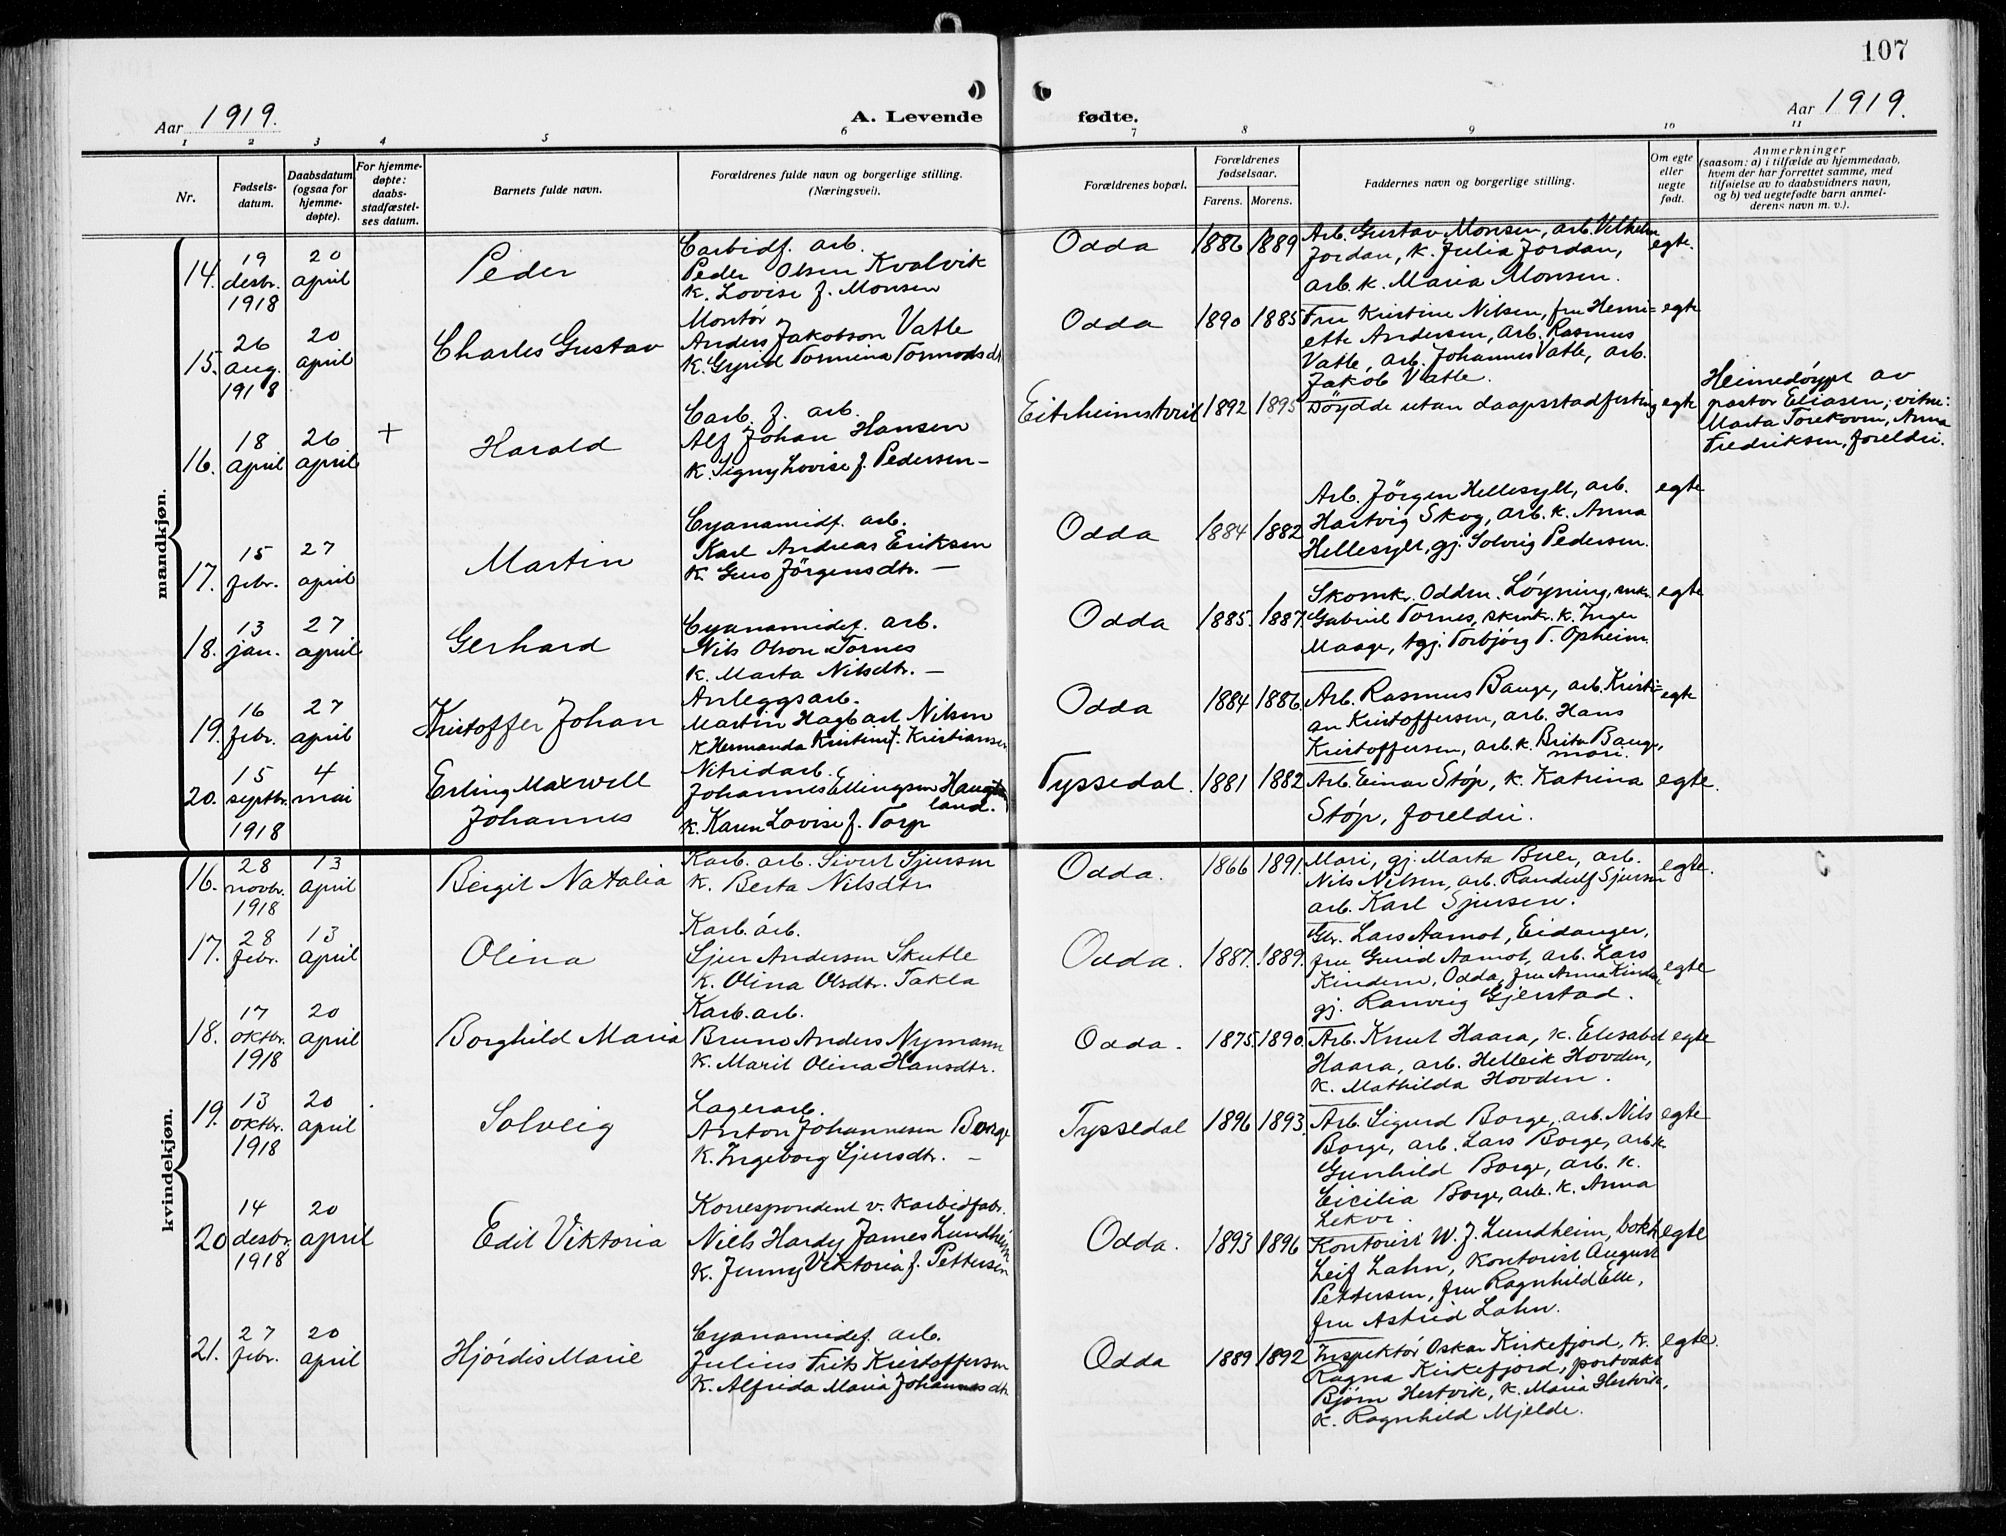 107
Aar 1919.
A. Levende
fødte.
Aar 1919.
1 2 3 4 5 6 7 8 9 10 11
Nr.
Fødsels-
datum.
Daabsdatum
(ogsaa for
hjemme-
døpte).
For hjemme-
døpte:
daabs-
stadfæstel-
ses datum.
Barnets fulde navn.
Forældrenes fulde navn og borgerlige stilling.
(Næringsvei).
Forældrenes bopæl.
Forældrenes
fødselsaar.
Farens. Morens.
Faddernes navn og borgerlige stilling.
Om egte
eller
uegte
født.
Anmerkninger
(saasom: a) i tilfælde av hjemmedaab,
hvem der har forrettet samme, med
tilføielse av to daabsvidners navn,
og b) ved uegtefødte barn anmel-
derens navn m. v.).
mandkjøn.
14.
19
desbr.
1918
20
april
Peder
Carbidf. arb.
Peder Olsen Kvalvik
k. Lovise f. Monsen
Odda
1886 1889
Arb. Gustav Monsen, arb. Vilhelm
Jordan, k. Julia Jordan,
arb. k. Maria Monsen.
egte.
15.
26
aug.
1918
20
april
Charles Gustav
Montør
Anders Jakobson Vatle
k. Gyrid Tormena Tormodsdt.
Odda
1890 1885
Fru Kristine Nilsen, fru Henri=
ette Andersen, arb. Rasmus
Vatle, arb. Johannes Vatle, arb.
Jakob Vatle.
egte
16.
18
april
26
april
+
Harald
Carb. f. arb.
Alf Johan Hansen
k. Signy Lovise f. Pedersen –
Eitrheimstveit
1892 1895
Døydde utan daapsstadfesting
egte
Heimedøypt av
pastor Eliasen; vitne:
Marta Torekoven, Anna
Fredriksen, foreldri.
17.
15
febr.
27
april
Martin
Cyanamidf. arb.
Karl Andreas Eriksen
k. Guro Jörgensdtr. –
Odda
1884 1882
Arb. Jörgen Hellesylt, arb.
Hartvig Skog, arb. k. Anna
Hellesylt, gj. Solveig Pedersen.
egte
18.
13
jan.
27
april
Gerhard
Cyanamidf. arb.
Nils Olson Tornes
k. Marta Nilsdtr. –
Odda
1885. 1887.
Skomkr. Oddm. Löyning, snkr.
Gabriel Tornes, skmkr. k. Inger
Maage, tgj. Torbjörg T. Opheim.
egte
19.
16
febr.
27
april
Kristoffer Johan
Anleggsarb.
Martin Hagbart Nilsen
k. Hermanda Kristine f. Kristiansen
Odda
1884 1886.
Arb. Rasmus Bauge, arb. Kristi=
an Kristoffersen, arb. Hans
Kristoffersen, arb. k. Brita Bauge,
mori.
egte
20.
15
septbr.
1918
4
mai
Erling Maxwell
Johannes
Nitridarb.
Johannes Ellingsen Hauge
land.
k. Karen Lovise f. Torp
Tyssedal.
1881 1882
Arb. Einar Støp, k. Katrina
Støp, foreldri.
egte.
kvindekjøn.
16.
28
novbr.
1918
13
april
Bergit Natalia
Karb. arb. Sivert Sjursen
k. Berta Nilsdtr
Odda.
1866 1891.
Mari, gj. Marta Buer, arb.
Nils Nilsen, arb. Randulf Sjursen
arb. Karl Sjursen.
egte.
17.
28
febr.
13
april
Olina
Karb. arb.
Sjur Andersen Skutle
k. Olina Olsdtr. Takla
Odda.
1887. 1889.
Gbr. Lars Aamot, Eidanger,
fru Gurid Aamot, arb. Lars
Kindem, Odda, fru Anna Kindem,
gj. Ranveig Gjerstad.
egte
18.
17
oktbr.
1918
20
april
Borghild Maria
Karb. arb.
Bruno Anders Nymann
k. Marit Olina Hansdtr.
Odda.
1875. 1890.
Arb. Knut Haara, k. Elisabet
Haara, arb. Helleik Hovden,
k. Mathilda Hovden.
egte
19.
13
oktbr.
1918
20
april
Solveig
Lagerarb.
Anton Johannesen Borge
k. Ingeborg Sjursdtr. –
Tyssedal
1896 1893.
Arb. Sigurd Borge, arb. Nils
Borge, arb. Lars Borge, arb. k.
Gunhild Borge, arb. k.
Cicilia Borge, arb. k. Anna
Lekve.
egte
20
14
desbr.
1918
20
april
Edit Viktoria
Korrespondent v. Karbidfabr.
Niels Hardy James Lundheim
k. Jenny Viktoria f. Pettersen
Odda.
1893 1896
Kontorist W. J. Lundheim, bokh.
Leif Lahn, kontorist August
Pettersen, fru Ragnhild Elle,
fru Astrid Lahn.
egte
21.
27
febr.
20
april
Hjördis Marie
Cyanamidf. arb.
Julius Frits Kristoffersen
k. Alfrida Maria Johannesdtr.
Odda
1889 1892
Inspektør Oskar Kirkefjord, k.
Ragna Kirkefjord, portvakt
Bjørn Hestvik, k. Maria Hestvik,
k. Ragnhild Mjelde.
egte.